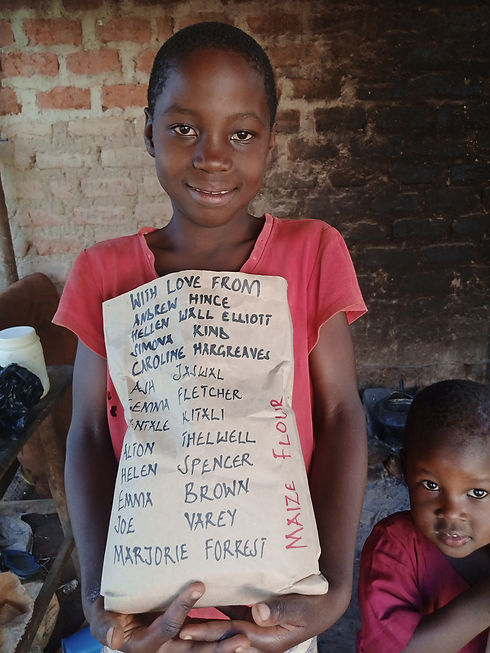 WITH LOVE FROM
ANDREW HINCE
HELLEN WALL ELLIOTT
SIMONA KIND
CAROLINE HARGREAVES
ASH JASWAL
GEMMA FLETCHER
KITALI
ALTON THELWELL
HELEN SPENCER
EMMA BROWN
JOE VAREY
MARJORIE FORREST
MAIZE FLOUR